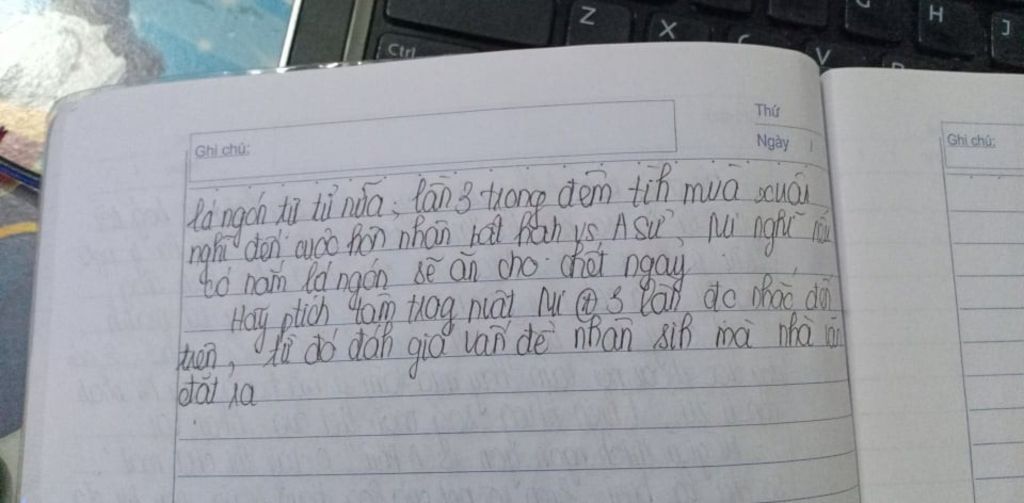 Ctrl
Z
X
C
V
B
G
H
J
Ghi chú:
Thứ
Ngày
Ghi chú:
lá ngón tử tử nữa, lần 3 trong đêm tìh mùa xuân
nghĩ đến cuộc hôn nhân bất hạh vs A Sử, Mị nghĩ nếu
có nắm lá ngón sẽ ăn cho chết ngay
Hãy ptích tâm trạg nvật Mị 3 lần đc nhắc đến
trên, từ đó đáh giá vấn đề nhân sih mà nhà văn
đặt ra